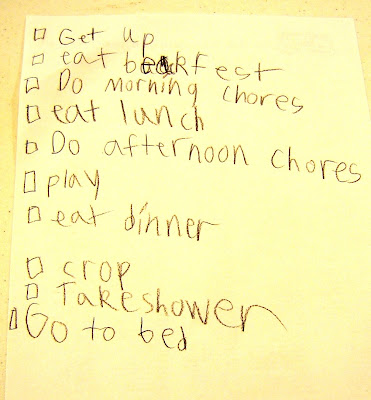 Get up
eat beakfest
Do morning chores
eat lunch
Do afternoon chores
play
eat dinner
crop
Takeshower
Go to bed